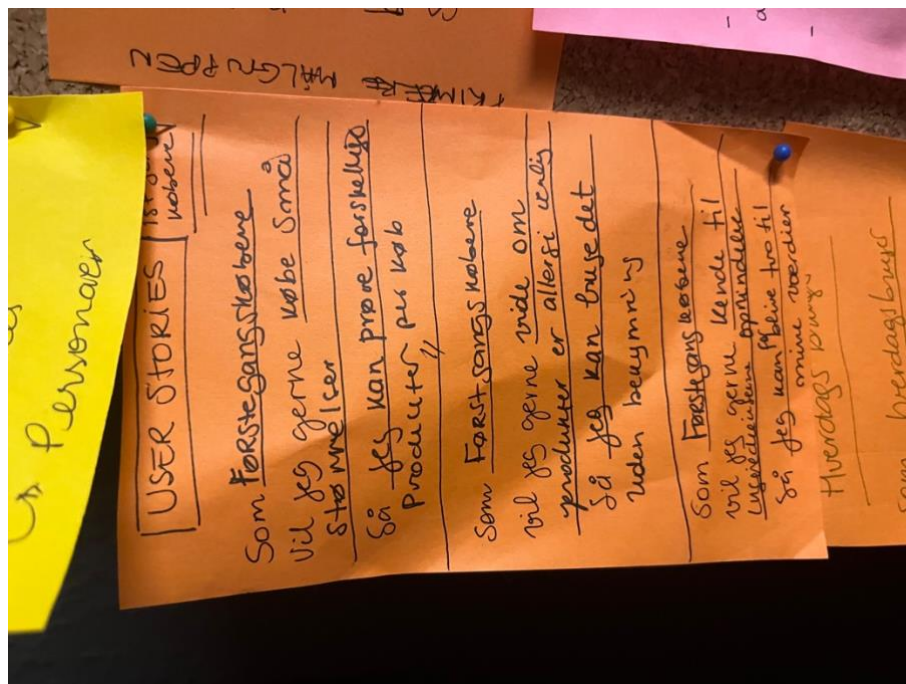 Personaer
MÅLGRUPPEN
USER STORIES
købere
Som Førstegangskøbere
Vil jeg gerne købe små
størrelser
Så jeg kan prøve forskellige
Produkter per køb
Som Førstgangskøbere
vil jeg gerne vide om
produkter er allergi venlig
Så jeg kan bruge det
uden bekymring
Som Førstegangskøbere
vil jeg gerne kende til
ingredienserne oprindelse
så jeg kan blive tro til
mine værdier
Hverdags
Som hverdagsbruger